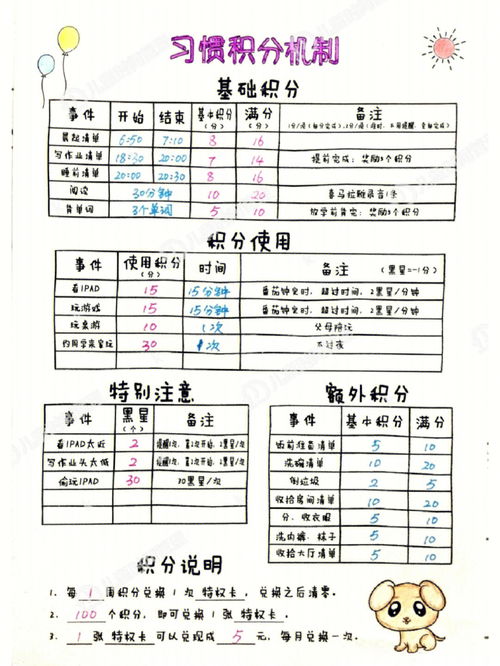 习惯积分机制
基础积分
事件 开始 结束 基本积分(分) 满分(分) 备注
晨起清单 6:50 7:10 8 16
写作业清单 18:30 20:00 7 14 提前完成：奖励3个积分
睡前清单 20:00 20:30 8 16
阅读 30分钟 10 20 喜马拉雅录音1条
背单词 3个单词 5 10 放学前背完：奖励3个积分
积分使用
事件 使用积分(分) 时间 备注 (黑星=-1分)
看IPAD 15 15分钟 番茄钟定时，超过时间，2黑星/分钟
玩游戏 15 15分钟 番茄钟定时，超过时间，2黑星/分钟
玩桌游 10 1次 父母陪玩
约同学来家玩 30 1次 不过夜
特别注意
事件 黑星(个) 备注
看IPAD太近 2 提醒1次，第2次开始，2黑星/次
写作业头太低 2 提醒1次，第2次开始，2黑星/次
偷玩IPAD 30 30黑星/次
额外积分
事件 基本积分 满分
饭前准备清单 5 10
洗碗清单 10 20
倒垃圾 2 5
收拾房间清单 10 20
分、收衣服 5 10
洗内裤、袜子 5 10
收拾大厅清单 5 10
积分说明
1. 每 1 周积分兑换 1 次 特权卡，兑换之后清零。
2. 100 个积分，即可兑换 1 张 特权卡。
3. 1 张 特权卡 可以兑现成 5 元，每月兑换一次。